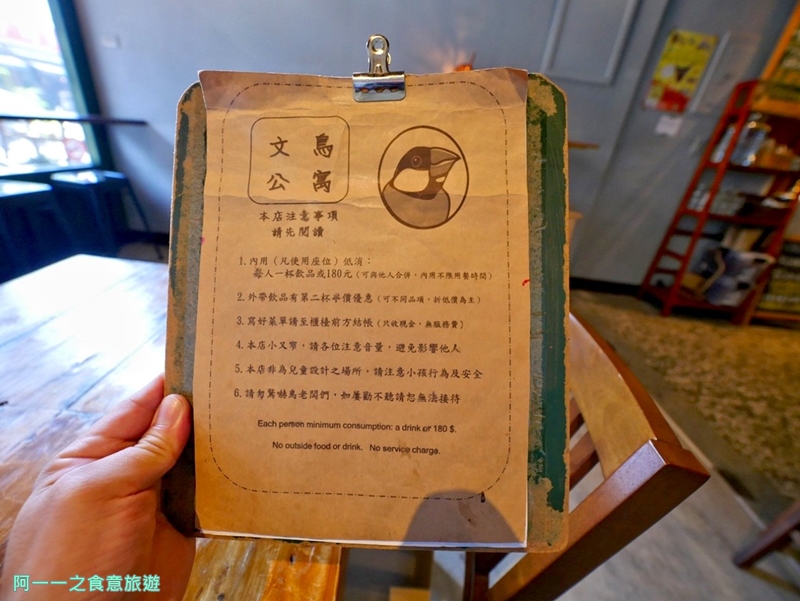 文鳥
公寓
本店注意事項
請先閱讀
1. 內用（凡使用座位）低消：
每人一杯飲品或180元（可與他人合併，內用不限用餐時間）
2. 外帶飲品有第二杯半價優惠（可不同品項，折低價為主）
3. 寫好菜單請至櫃檯前方結帳（只收現金，無服務費）
4. 本店小又窄，請各位注意音量，避免影響他人
5. 本店非為兒童設計之場所，請注意小孩行為及安全
6. 請勿驚嚇鳥老闆們，如屢勸不聽請恕無法接待
Each person minimum consumption: a drink or 180 $.
No outside food or drink. No service charge.
阿一一之食意旅遊